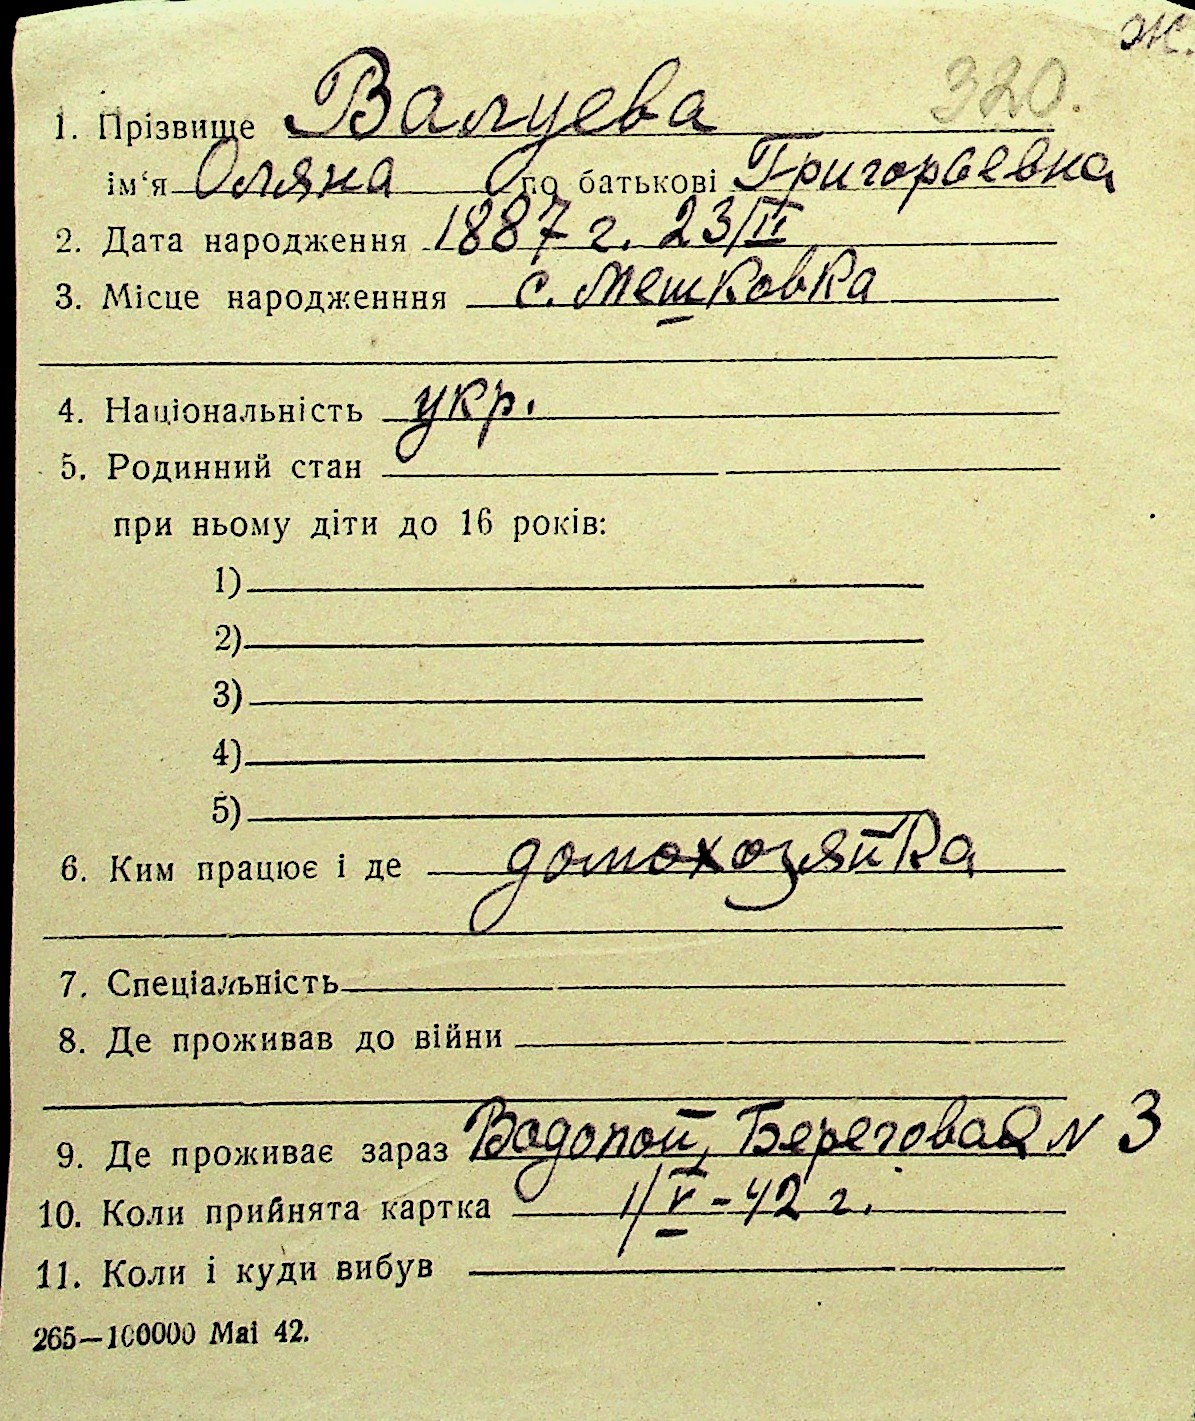 ж.
320.
1. Прізвище Валуева
ім'я Оляна по батькові Григорьевна
2. Дата народження 1887 г. 23/II
3. Місце народженння с. Мешковка
4. Національність укр.
5. Родинний стан
при ньому діти до 16 років:
1)
2)
3)
4)
5)
6. Ким працює і де домохозяйка
7. Спеціальність
8. Де проживав до війни
9. Де проживає зараз Водопой, Береговая N 3
10. Коли прийнята картка 1/V-42 г.
11. Коли і куди вибув
265—100000 Mai 42.